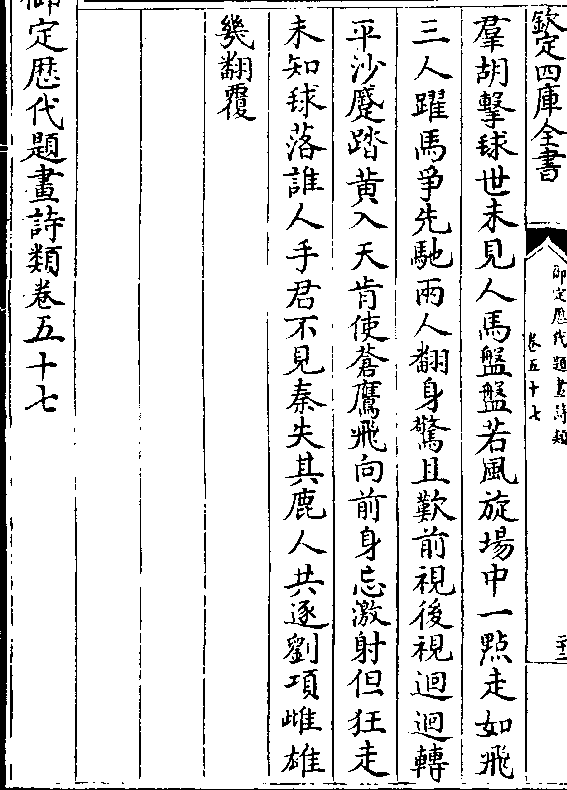 欽定四庫全書
御定歷代題畫詩類
卷五十七
二十二
羣胡擊毬世未見人馬盤盤若風旋場中一㸃走如飛
三人躍馬爭先馳兩人翻身驚且歎前視後視迴迴轉
平沙蹙踏黄入天肯使蒼鷹飛向前身忘激射但狂走
未知毬落誰人手君不見秦失其鹿人共逐劉項雌雄
幾翻覆
御定歷代題畫詩類卷五十七